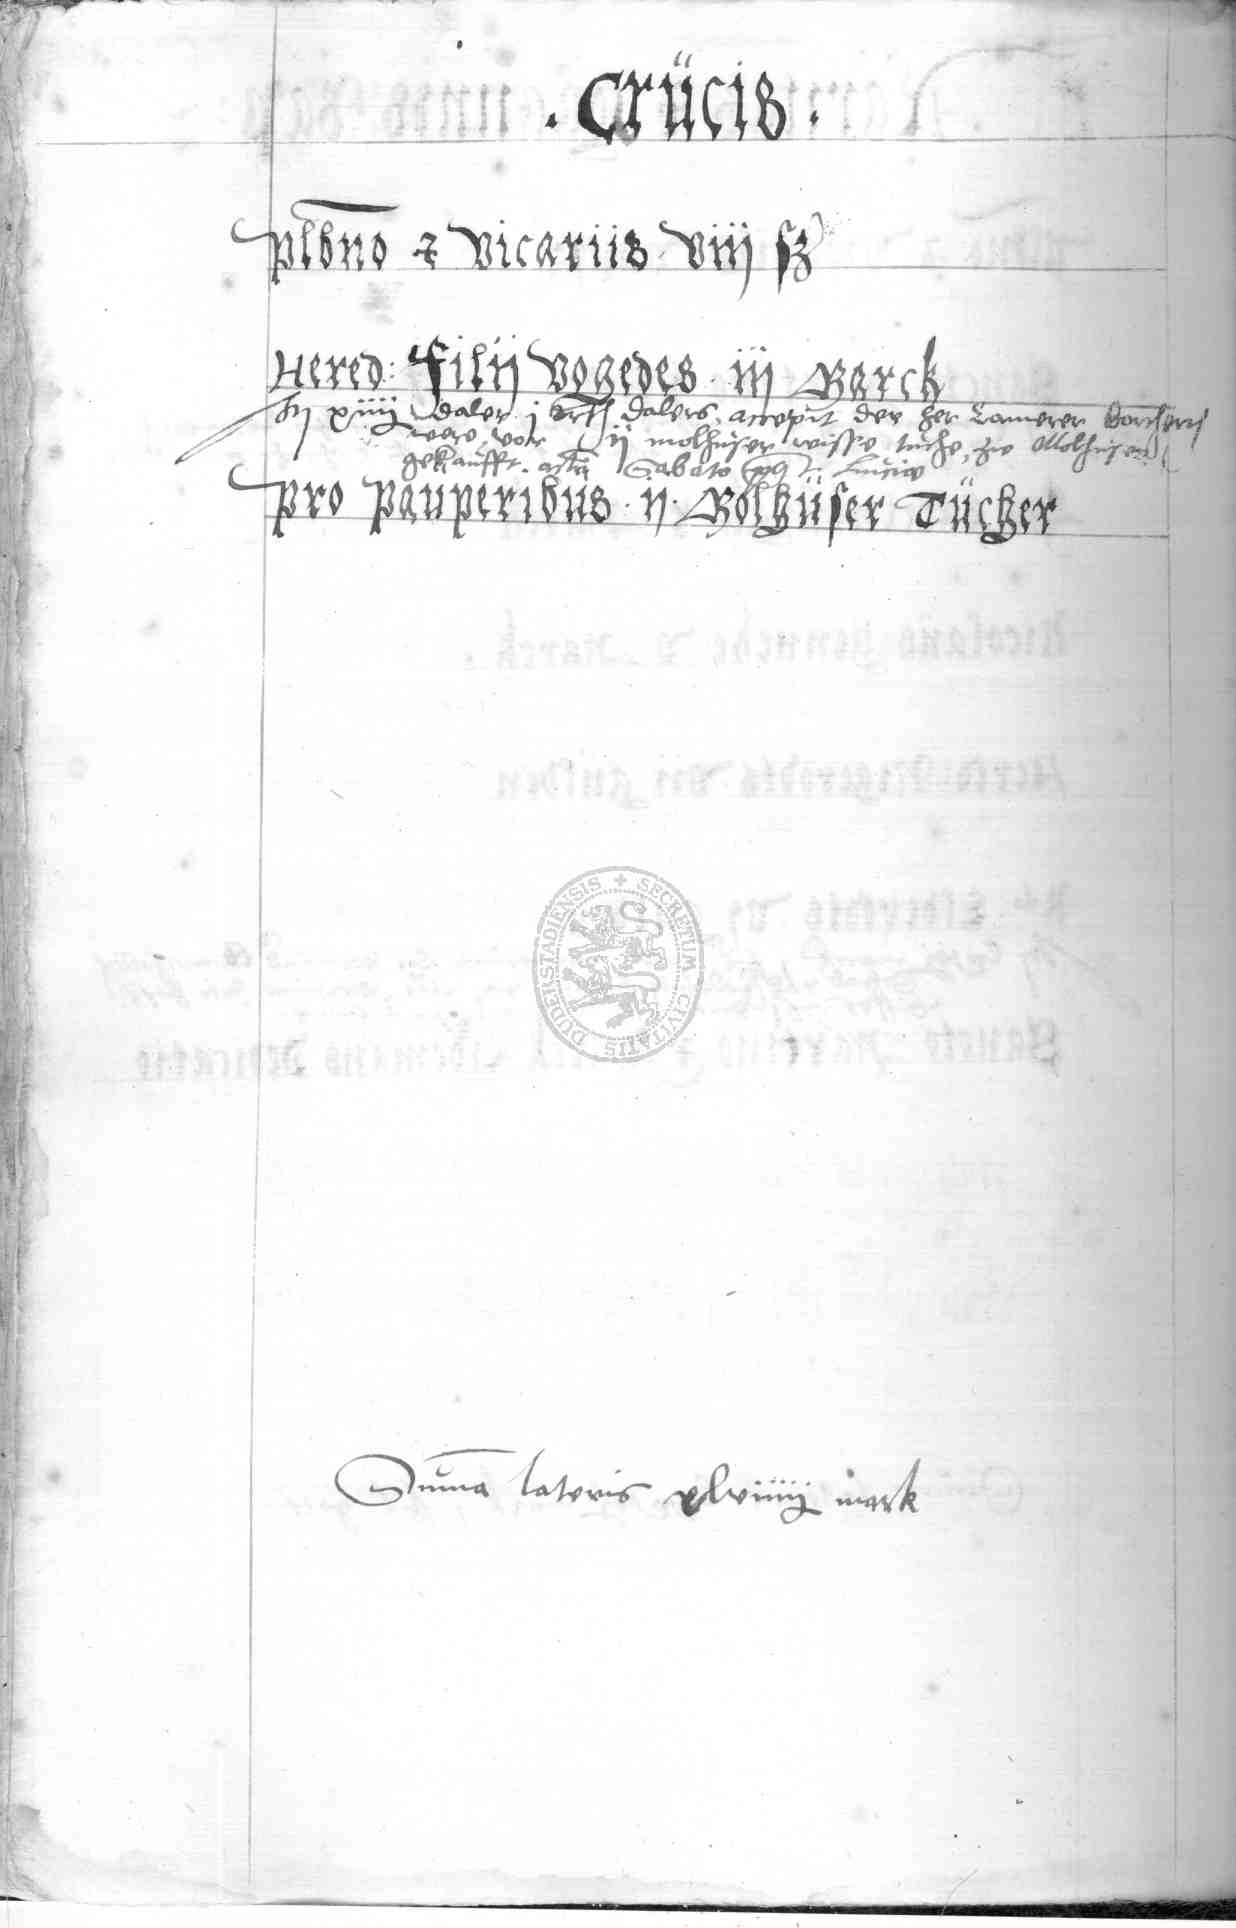 . Crücis .
plbno & vicariis viij ß
Hered: filij vogedes iij Marck
xiiij daler j ort dalers, accepit der her Camerer
vor ij molhuser wisse tuche, zw Molhusen
gekaufft. actu Sabato Lucie
pro pauperibus ij Molhüser Tücher
SECRETUM CIVITATIS DUDERSTADIENSIS
Summa lateris mark